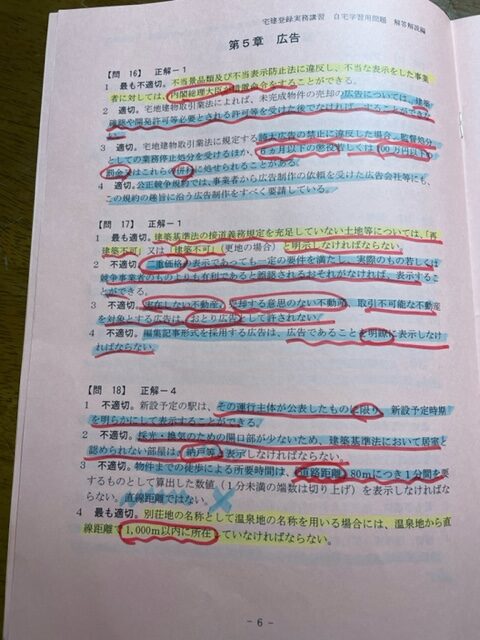 宅建登録実務講習 自宅学習用問題 解答解説編
第5章 広告
【問 16】 正解−1
1 最も不適切。不当景品類及び不当表示防止法に違反し、不当な表示をした事業
者に対しては、内閣総理大臣が措置命令をすることができる。
2 適切。宅地建物取引業法によれば、未完成物件の売却の広告については、建築
確認や開発許可等必要とされる許可等を受けた後でなければ、することができな
い。
3 適切。宅地建物取引業法に規定する誇大広告の禁止に違反した場合、監督処分
としての業務停止処分を受けるほか、6ヵ月以下の懲役若しくは100万円以下の
罰金又はこれらの併科に処せられることがある。
4 適切。公正競争規約では、事業者から広告制作の依頼を受けた広告会社等にも、
この規約の趣旨に沿う広告制作をすべく要請している。
【問 17】 正解−1
1 最も適切。建築基準法の接道義務規定を充足していない土地等については、「再
建築不可」又は「建築不可」(更地の場合)と明示しなければならない。
2 不適切。二重価格の表示であっても一定の要件を満たし、実際のもの若しくは
競争事業者のものよりも有利であると誤認されるおそれがなければ、表示するこ
とができる。
3 不適切。実在しない不動産、売却する意思のない不動産、取引不可能な不動産
を対象とする広告は、おとり広告として許されない。
4 不適切。編集記事形式を採用する広告は、広告であることを明瞭に表示しなけ
ればならない。
【問 18】 正解−4
1 不適切。新設予定の駅は、その運行主体が公表したものに限り、新設予定時期
を明らかにして表示することができる。
2 不適切。採光・換気のための開口部が少ないため、建築基準法において居室と
認められない部屋は、「納戸等」と表示しなければならない。
3 不適切。物件までの徒歩による所要時間は、道路距離80mにつき1分間を要
するものとして算出した数値(1分未満の端数は切り上げ)を表示しなければな
らない。直線距離ではない。
4 最も適切。別荘地の名称として温泉地の名称を用いる場合には、温泉地から直
線距離で1,000m以内に所在していなければならない。
- 6 -